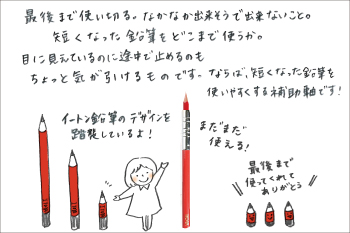 最後まで使い切る。なかなか出来そうで出来ないこと。
短くなった鉛筆をどこまで使うか。
目に見えているのに途中で止めるのも
ちょっと気が引けるものです。ならば、短くなった鉛筆を
使いやすくする補助軸です!
イートン鉛筆のデザインを
踏襲しているよ!
まだまだ
使える!
最後まで
使ってくれて
ありがとう